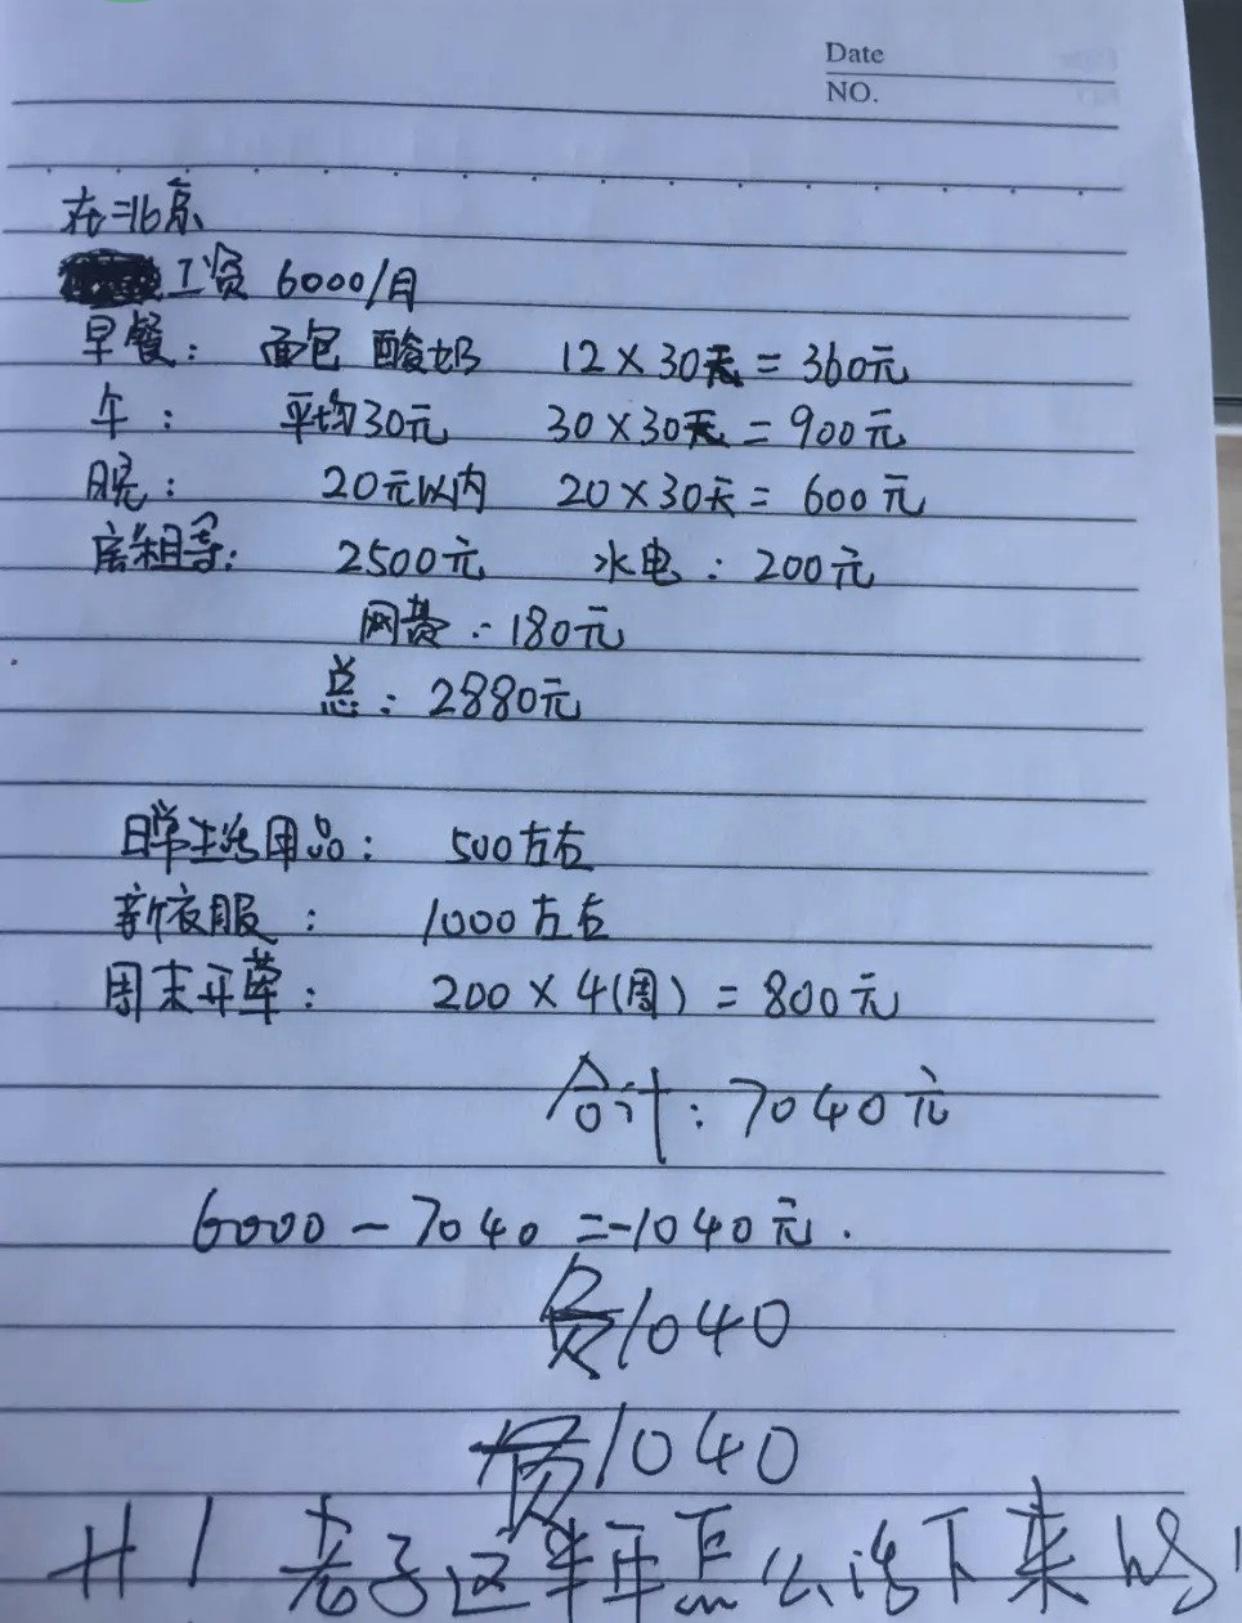 Date
NO.
在北京
工资 6000/月
早餐： 面包 酸奶 12×30天=360元
午： 平均30元 30×30天=900元
晚： 20元以内 20×30天=600元
房租等： 2500元 水电：200元
网费：180元
总：2880元
日常生活用品： 500左右
新衣服： 1000左右
周末开荤： 200×4(周)=800元
合计：7040元
6000-7040=-1040元.
负1040
1040
老子这半年怎么活下来的